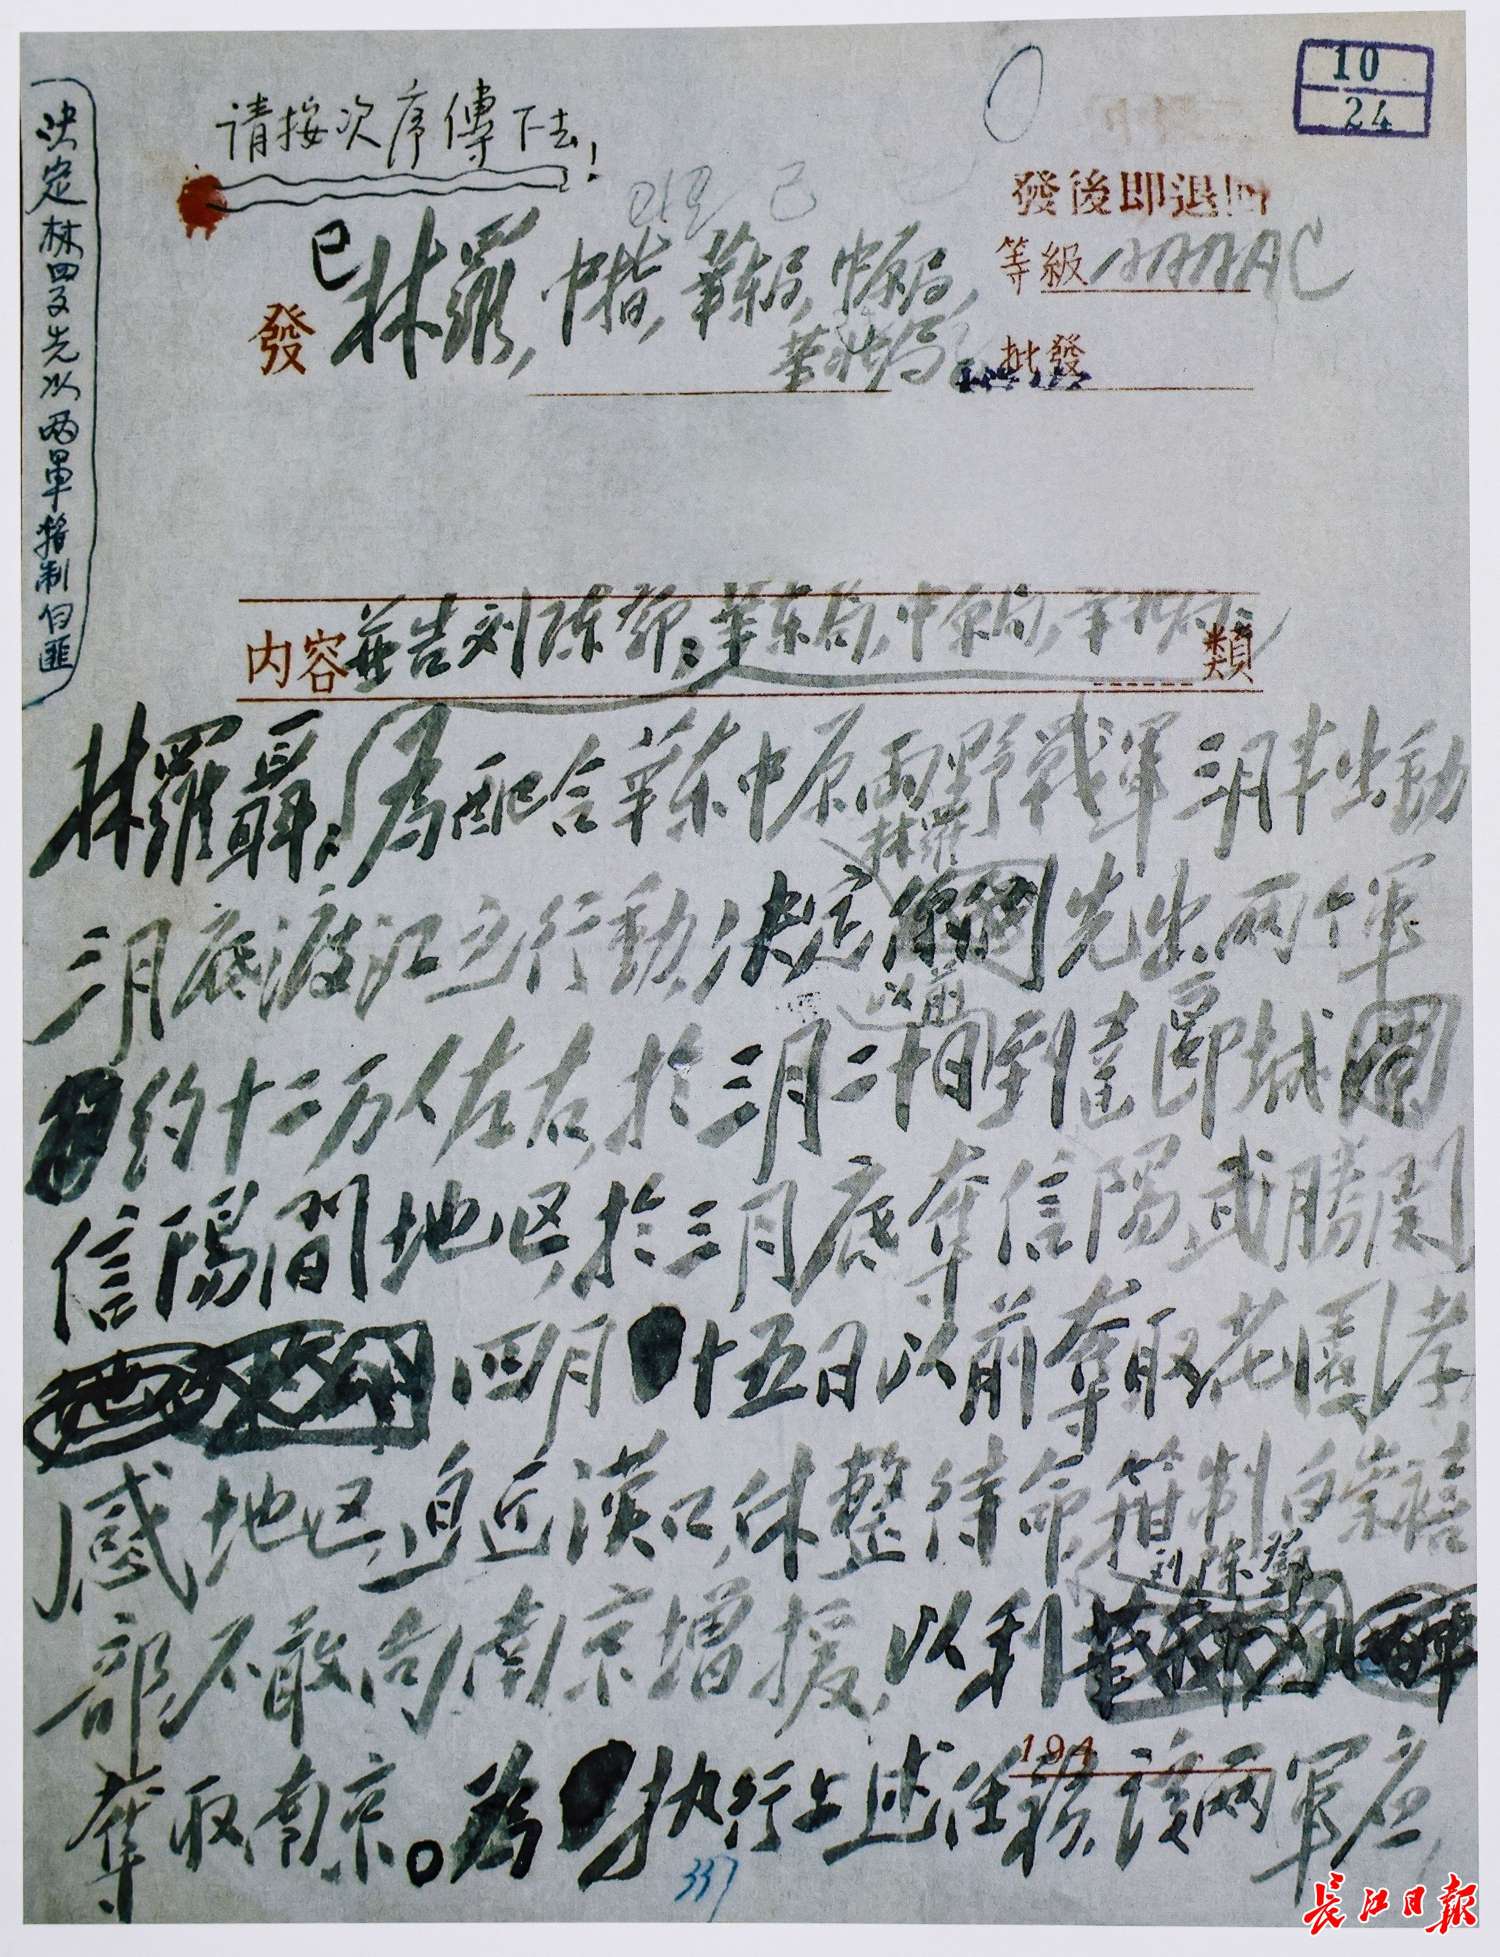 10
24
决定林罗先以两军箝制白匪
请按次序傳下去！
發後即退回
等級 AAAAC
發 林羅，中指，華东局，中原局，
華北局
批發
内容 並告刘陈邓：華东局，中原局，華北局： 類
林羅聶：為配合華东中原兩野戰軍三月半出動
三月底渡江之行動，决定林羅先出两个軍
約十二万人左右，於三月二十日以前到達郾城
信陽間地区，於三月底奪信陽武勝関
四月十五日以前奪取花園孝
感地区，迫近漢口，休整待命，箝制白崇禧
部，不敢向南京增援，以利刘陈鄧
奪取南京。為执行上述任務，该两軍应
194
337
長江日報